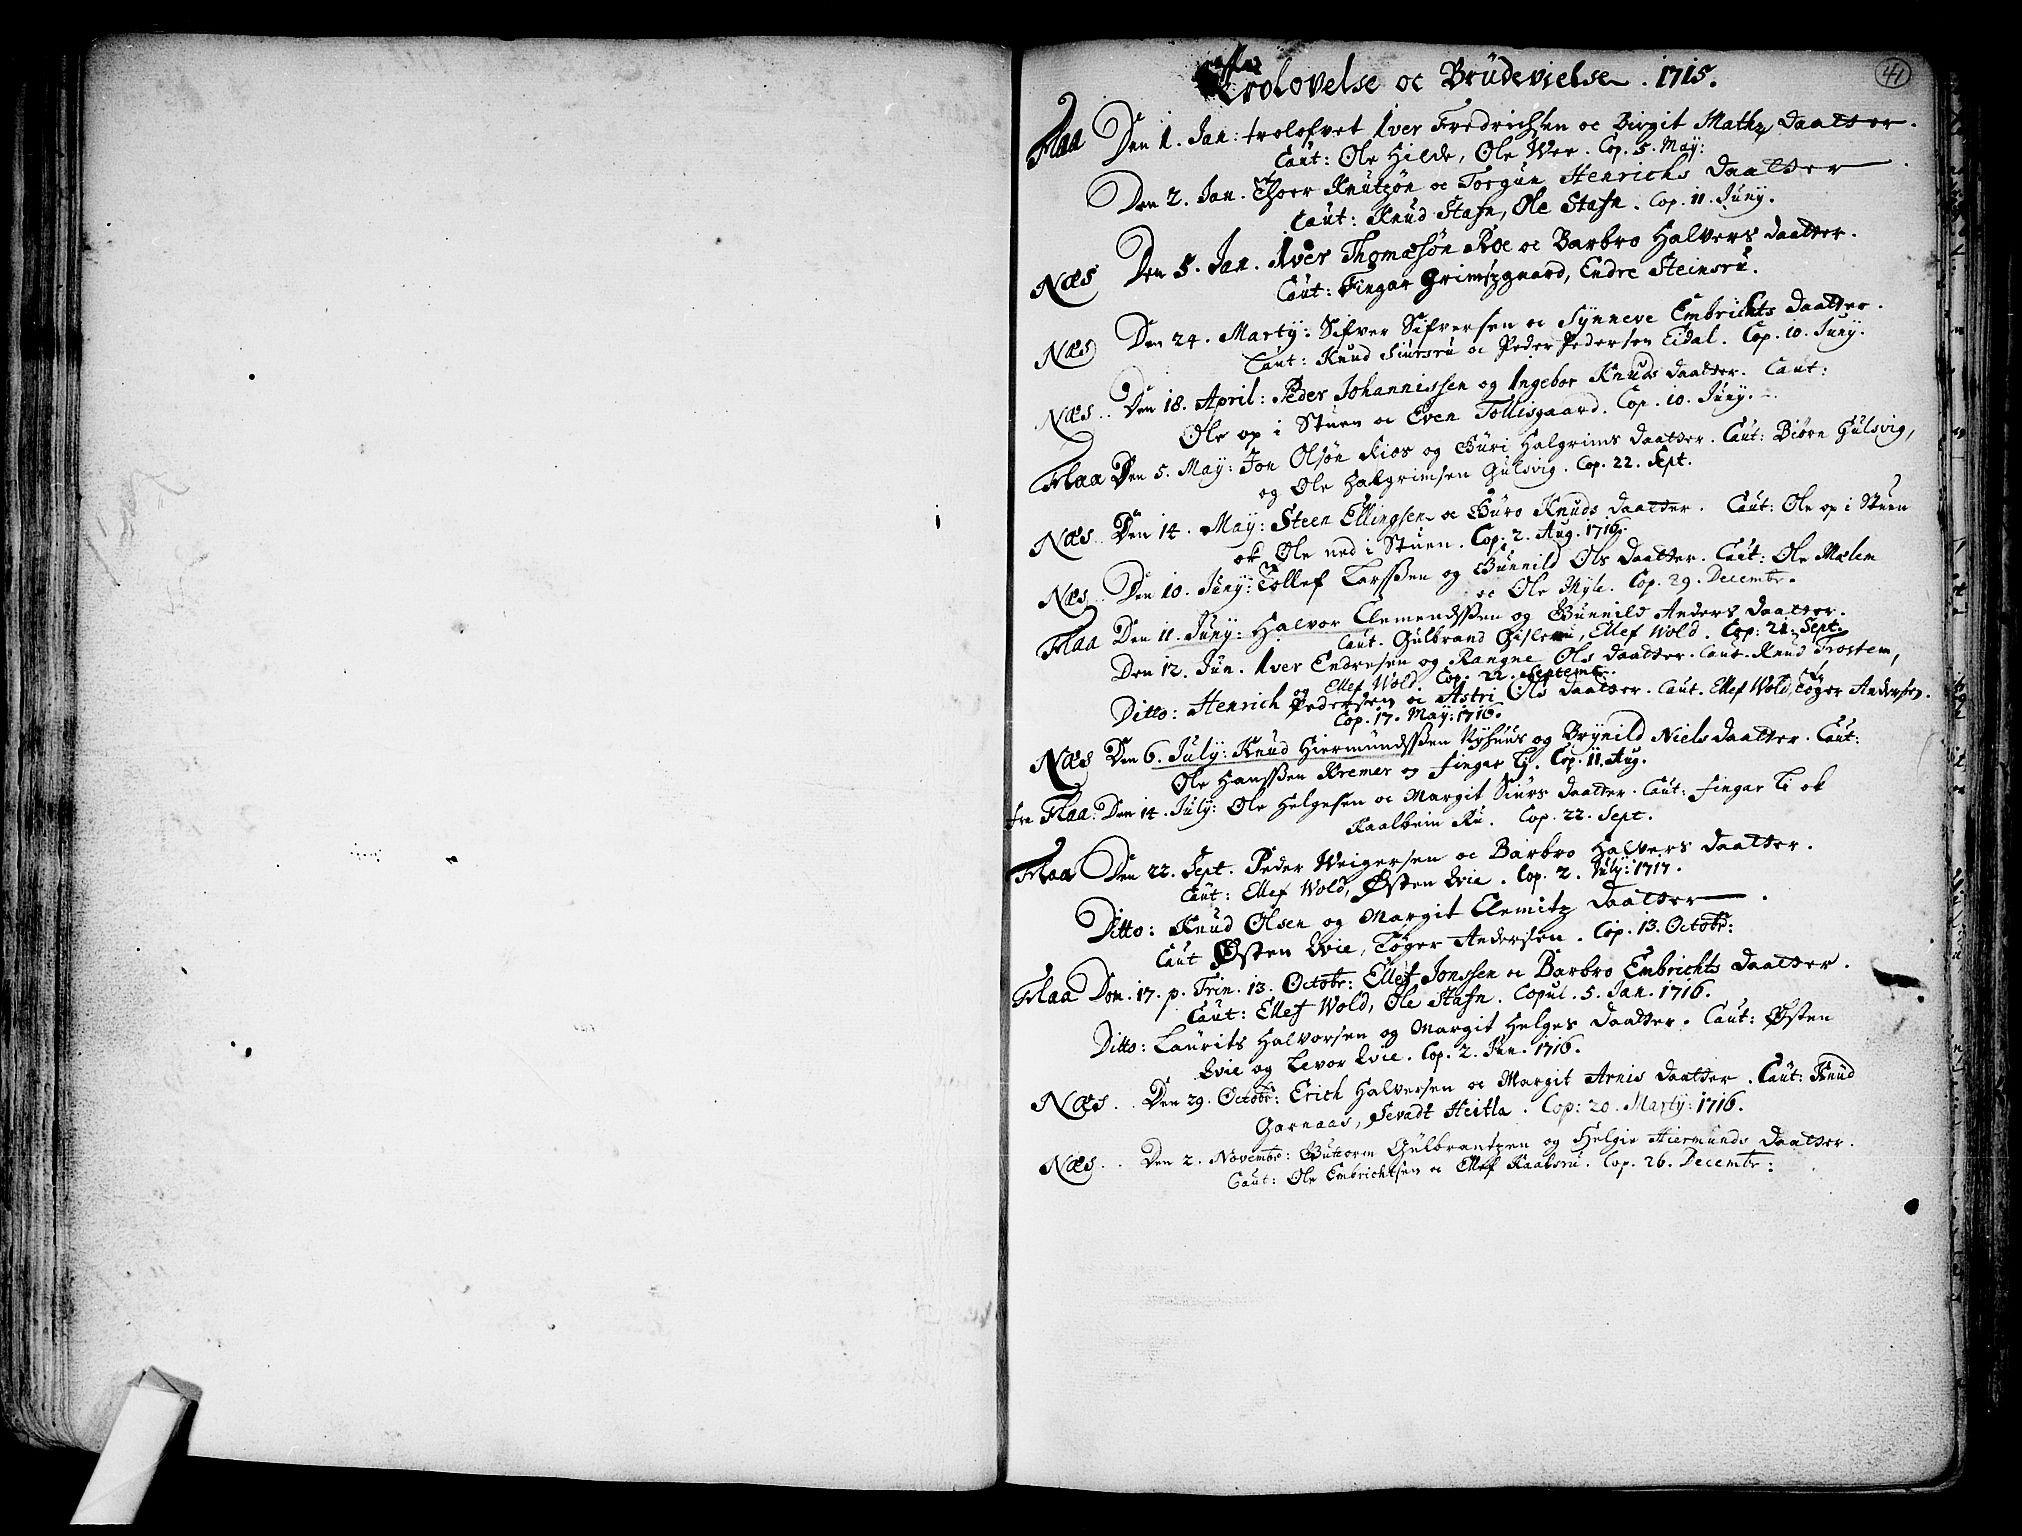 41
Trolovelse oc Brüdevielse. 1715.
Flaa Den 1. Jan: trolofvet Iver Fredrichsen oc Birgit Mathz daatter.
Caut: Ole Hilde, Ole Wer. Cop. 5. May:
Den 2. Jan. Thoer Knutzøn oc Torgun Henrichs daatter
Caut: Knud Stafn, Ole Stafn. Cop. 11. Juny.
Næs Den 5. Jan. Iver Thomæsøn Roe oc Barbro Halvers daatter.
Caut: Fingar Grimszgaard, Endre Steinsrü.
Næs Den 24. Martÿ: Sifver Sifversen oc Sÿnneve Embrichts daatter.
Caut: Knud Siursrü oc Peder Pedersen Eidal. Cop. 10. Juny.
Næs.. Den 18. April: Peder Johannissen og Ingebor Knuds daatter. Caut:
Ole op i Stuen oc Even Tollisgaard. Cop. 10. Juny.
Flaa Den 5. Maÿ: Jon Olsøn Rios og Güri Halgrims daatter. Caut: Biørn Gülsvig,
og Ole Halgrimsen Gülsvig. Cop. 22. Sept.
Næs.. Den 14. Maÿ: Steen Ellingsen oc Güro Knuds daatter. Caut: Ole op i Stuen
ok Ole ned i Stuen. Cop. 2. Aug. 1716.
Næs.. Den 10. Juny: Tollef Larssen og Günnild Ols daatter. Caut: Ole Mælen
oc Ole Myle. Cop. 29. Decembr.
Flaa Den 11. Juny: Halvor Clemendssen og Gunnild Anders daatter.
Caut. Gulbrand Gislerü, Ellef Wold. Cop: 21. Sept.
Den 12. Jun. Iver Endresen og Rangne Ols daatter. Caut. Knud Trostem,
og Ellef Wold. Cop. 22. Septemb.
Ditto: Henrich Pedersen oc Astri Ols daatter. Caut. Ellef Wold, Tøger Andersen.
Cop. 17. May: 1716.
Næs Den 6. Julÿ: Knud Hiermundssen Nÿhuus og Brÿnild Niels daatter. Caut:
Ole Hanssen Kremer og Fingar Li. Cop. 11. Aug.
fra Flaa: Den 14. July: Ole Helgesen oc Margit Siürs daatter. Caut: Fingar Li ok
Kaalbein Rü. Cop. 22. Sept.
Flaa Den 22. Sept. Peder Weigersen oc Barbro Halvers daatter.
Caut: Ellef Wold, Østen Qvie. Cop. 2. July: 1717.
Ditto: Knud Olsen og Margit Clemitz daatter.
Caut Østen Qvie, Tøger Andersen. Cop. 13. Octobr:
Flaa Dom. 17. p. Trin. 13. Octobr: Ellef Jonssen oc Barbro Embrichts daatter.
Caut: Ellef Wold, Ole Stafn. Copul. 5. Jan. 1716.
Ditto: Laurits Halvorsen og Margit Helges daatter. Caut: Østen
Qvie og Levor Qvie. Cop. 2. Jan. 1716.
Næs.. Den 29. Octobr: Erich Halversen oc Margit Arnis daatter. Caut: Knud
Garnaas, Sevadt Heitla. Cop: 20. Martÿ: 1716.
Næs.. Den 2. Novembr: Guttorm Gülbrantzen og Helgie Hiermunds daatter.
Caut: Ole Embrichtsen oc Ellef Kaalsrü. Cop. 26. Decembr: